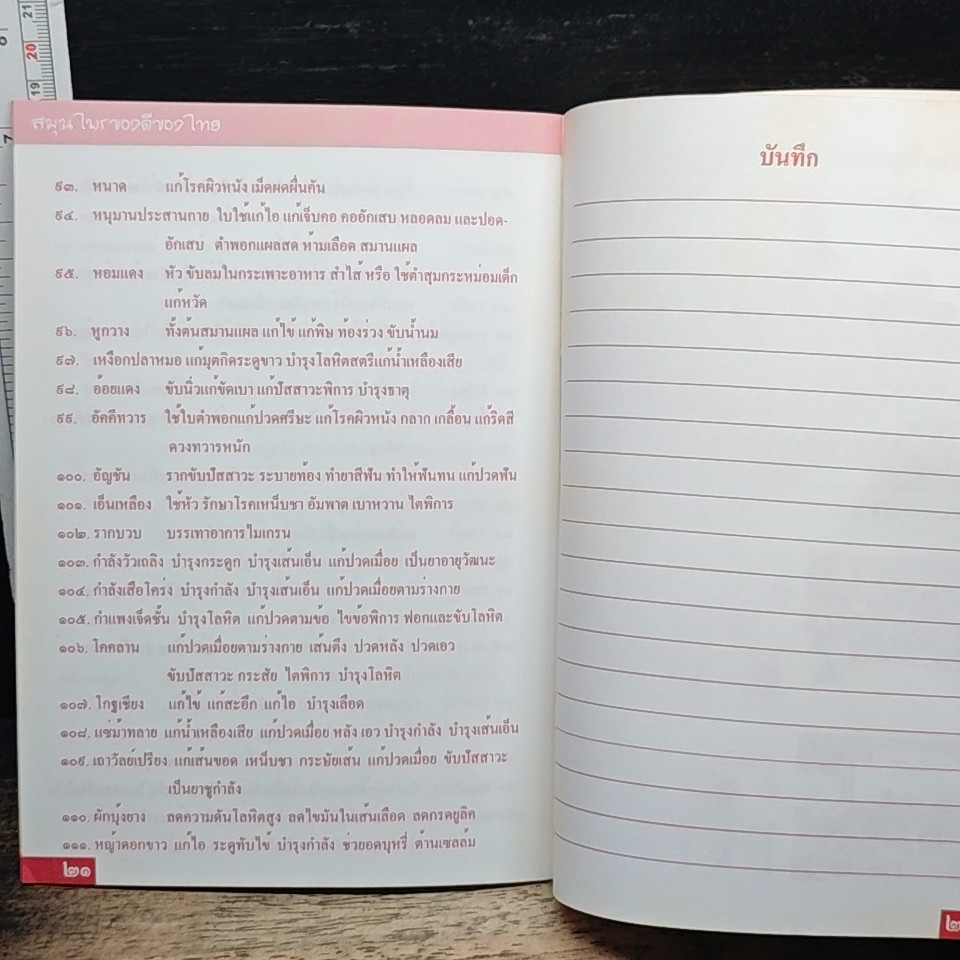 สมุนไพรของดีของไทย
๙๓. หนาด แก้โรคผิวหนัง เม็ดผดผื่นคัน
๙๔. หนุมานประสานกาย ใบใช้แก้ไอ แก้เจ็บคอ คออักเสบ หลอดลม และปอด-
อักเสบ ตำพอกแผลสด ห้ามเลือด สมานแผล
๙๕. หอมแดง หัว ขับลมในกระเพาะอาหาร ลำไส้ หรือ ใช้ตำสุมกระหม่อมเด็ก
แก้หวัด
๙๖. หูกวาง ทั้งต้นสมานแผล แก้ไข้ แก้พิษ ท้องร่วง ขับน้ำนม
๙๗. เหงือกปลาหมอ แก้มุตกิดระดูขาว บำรุงโลหิตสตรีแก้น้ำเหลืองเสีย
๙๘. อ้อยแดง ขับนิ่วแก้ขัดเบา แก้ปัสสาวะพิการ บำรุงธาตุ
๙๙. อัคคีทวาร ใช้ใบตำพอกแก้ปวดศรีษะ แก้โรคผิวหนัง กลาก เกลื้อน แก้ริดสี
ดวงทวารหนัก
๑๐๐. อัญชัน รากขับปัสสาวะ ระบายท้อง ทำยาสีฟัน ทำให้ฟันทน แก้ปวดฟัน
๑๐๑. เอ็นเหลือง ใช้หัว รักษาโรคเหน็บชา อัมพาต เบาหวาน ไตพิการ
๑๐๒. รากบวบ บรรเทาอาการไมเกรน
๑๐๓. กำลังวัวเถลิง บำรุงกระดูก บำรุงเส้นเอ็น แก้ปวดเมื่อย เป็นยาอายุวัฒนะ
๑๐๔. กำลังเสือโคร่ง บำรุงกำลัง บำรุงเส้นเอ็น แก้ปวดเมื่อยตามร่างกาย
๑๐๕. กำแพงเจ็ดชั้น บำรุงโลหิต แก้ปวดตามข้อ ไขข้อพิการ ฟอกและขับโลหิต
๑๐๖. โคคลาน แก้ปวดเมื่อยตามร่างกาย เส้นตึง ปวดหลัง ปวดเอว
ขับปัสสาวะ กระสัย ไตพิการ บำรุงโลหิต
๑๐๗. โกฐเชียง แก้ไข้ แก้สะอึก แก้ไอ บำรุงเลือด
๑๐๘. แซ่ม้าทลาย แก้น้ำเหลืองเสีย แก้ปวดเมื่อย หลัง เอว บำรุงกำลัง บำรุงเส้นเอ็น
๑๐๙. เถาวัลย์เปรียง แก้เส้นขอด เหน็บชา กระษัยเส้น แก้ปวดเมื่อย ขับปัสสาวะ
เป็นยาชูกำลัง
๑๑๐. ผักบุ้งยาง ลดความดันโลหิตสูง ลดไขมันในเส้นเลือด ลดกรดยูลิค
๑๑๑. หญ้าดอกขาว แก้ไอ ระดูทับไข้ บำรุงกำลัง ช่วยอดบุหรี่ ต้านเซลล์ม
๒๑
บันทึก
7
19
20
21